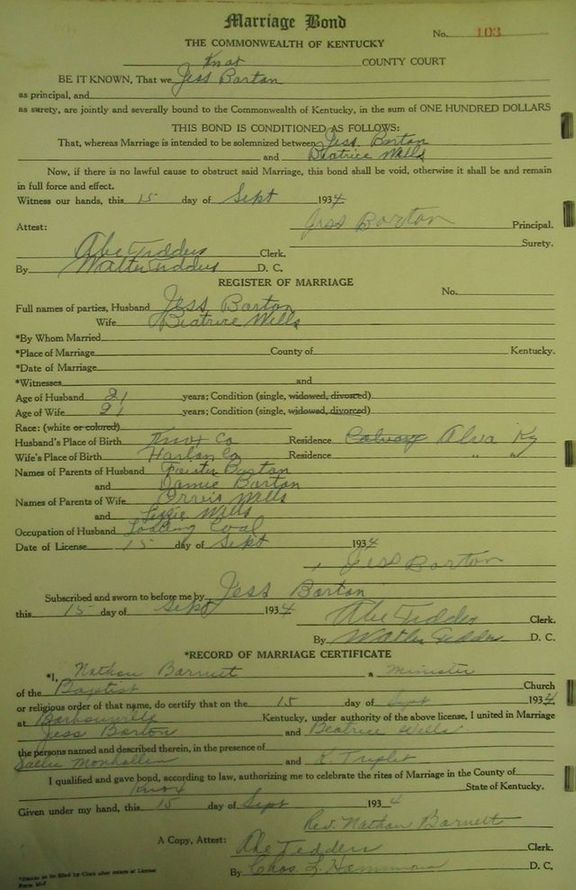 Marriage Bond
No. 103
THE COMMONWEALTH OF KENTUCKY
Knox COUNTY COURT
BE IT KNOWN, That we Jess Barton
as principal, and
as surety, are jointly and severally bound to the Commonwealth of Kentucky, in the sum of ONE HUNDRED DOLLARS
THIS BOND IS CONDITIONED AS FOLLOWS:
That, whereas Marriage is intended to be solemnized between Jess Barton
and Beatrice Wells
Now, if there is no lawful cause to obstruct said Marriage, this bond shall be void, otherwise it shall be and remain
in full force and effect.
Witness our hands, this 15 day of Sept 1934
Jess Barton Principal.
Attest: Surety.
Abe Tedders Clerk.
By Walter Tedders D. C.
REGISTER OF MARRIAGE
No.
Full names of parties, Husband Jess Barton
Wife Beatrice Wells
*By Whom Married
*Place of Marriage County of Kentucky.
*Date of Marriage
*Witnesses and
Age of Husband 21 years; Condition (single, widowed, divorced)
Age of Wife 21 years; Condition (single, widowed, divorced)
Race: (white or colored)
Husband's Place of Birth Knox Co Residence Alva Ky
Wife's Place of Birth Harlan Co Residence " "
Names of Parents of Husband Barton
and Barton
Names of Parents of Wife Wells
and Wells
Occupation of Husband Loading Coal
Date of License 15 day of Sept 1934
Jess Barton
Subscribed and sworn to before me by Jess Barton
this 15 day of Sept 1934 Abe Tedders Clerk.
By Walter Tedders D. C.
*RECORD OF MARRIAGE CERTIFICATE
*I, Nathan Barnett a Minister
of the Baptist Church
or religious order of that name, do certify that on the 15 day of Sept 1934
at Barbourville Kentucky, under authority of the above license, I united in Marriage
Jess Barton and Beatrice Wells
the persons named and described therein, in the presence of
Sallie and
I qualified and gave bond, according to law, authorizing me to celebrate the rites of Marriage in the County of
Knox State of Kentucky.
Given under my hand, this 15 day of Sept 1934
Rev. Nathan Barnett
A Copy, Attest: Abe Tedders Clerk.
By Chas. L. D. C.